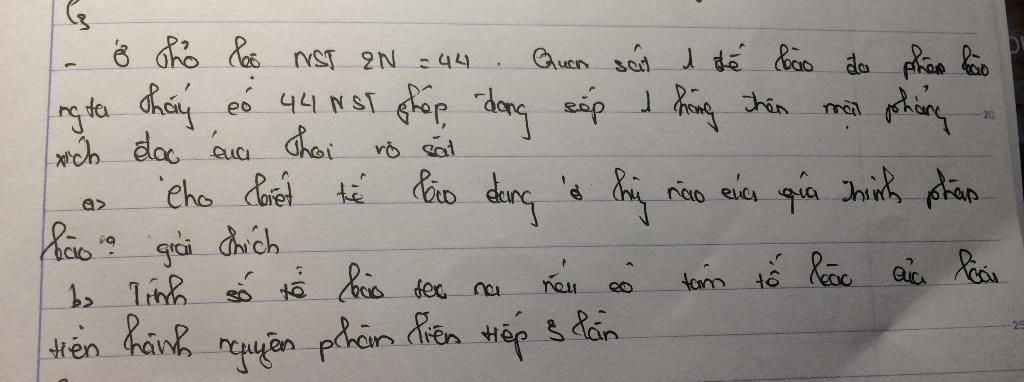 C3
- Ở thỏ bộ NST 2N = 44. Quan sát 1 tế bào da phân bào
ngta thấy có 44 NST kép đang xếp 1 hàng trên mặt phẳng
xích đạo của thoi vô sắc
a> Cho biết tế bào đang ở kỳ nào của quá trình phân
bào? giải thích
b> Tính số tế bào tạo ra nếu có tám tế bào của loài
tiến hành nguyên phân liên tiếp 3 lần